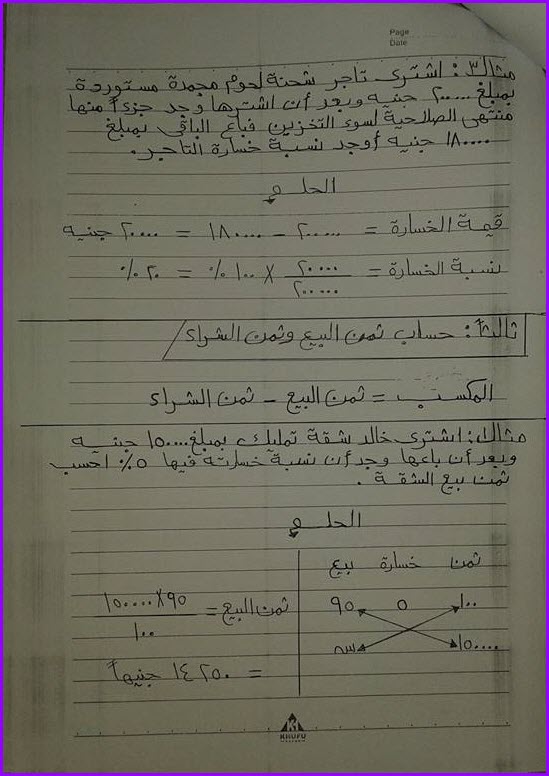 Page
Date
مثال٣: اشترى تاجر شحنة لحوم مجمدة مستوردة
بمبلغ ٢٠٠٠٠٠ جنيه وبعد أن اشترها وجد جزءاً منها
منتهى الصلاحية لسوء التخزين فباع الباقى بمبلغ
١٨٠٠٠٠ جنيه أوجد نسبة خسارة التاجر.
الحلــــ
قيمة الخسارة = ٢٠٠٠٠٠ - ١٨٠٠٠٠ = ٢٠٠٠٠ جنيه
نسبة الخسارة = ٢٠٠٠٠ / ٢٠٠٠٠٠ × ١٠٠٪ = ٢٠٪
ثالثاً: حساب ثمن البيع وثمن الشراء
المكسب = ثمن البيع - ثمن الشراء
مثال١: اشترى خالد شقة تمليك بمبلغ ١٥٠٠٠٠ جنيه
وبعد أن باعها وجد أن نسبة خسارته فيها ٥٪ احسب
ثمن بيع الشقة.
الحلــــ
ثمن خسارة بيع
١٠٠ ٥ ٩٥
١٥٠٠٠٠ س
ثمن البيع = ٩٥×١٥٠٠٠٠ / ١٠٠
= ١٤٢٥٠ جنيهاً
KHUFU